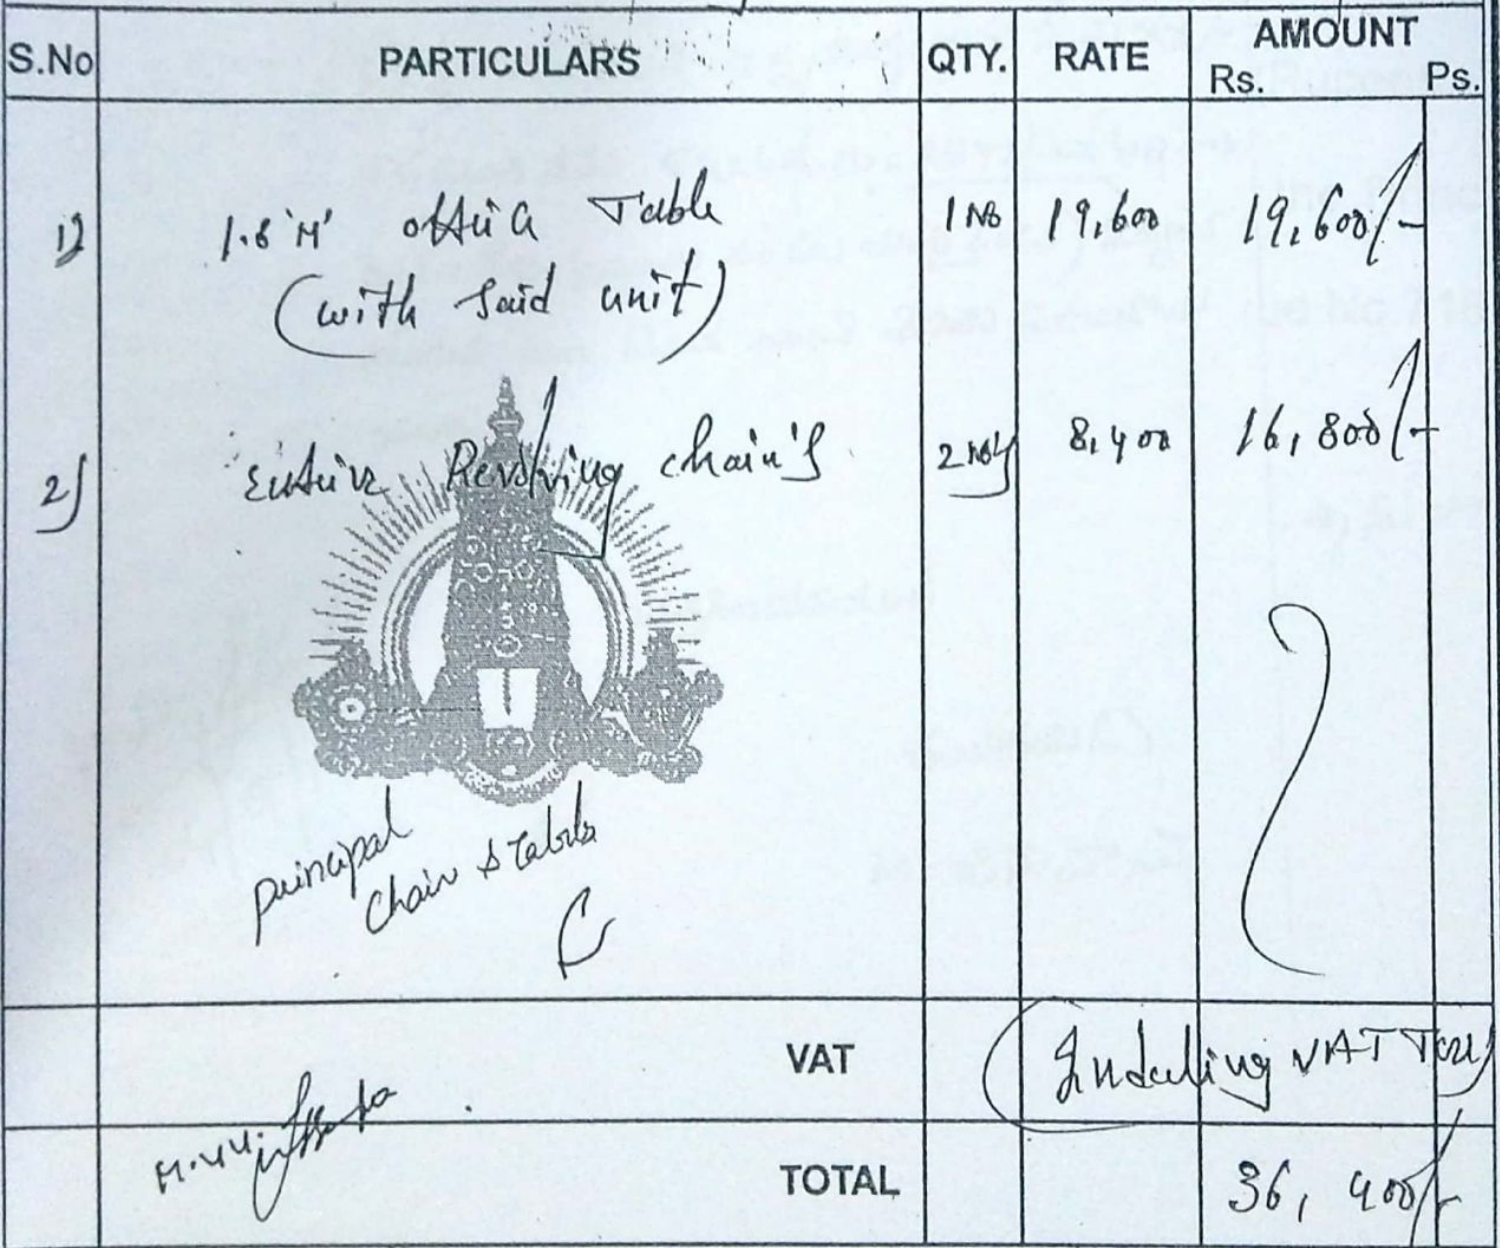 S.No PARTICULARS QTY. RATE AMOUNT
Rs. Ps.
1) 1.8 'M' office Table 1 No 19,600 19,600/-
(with Said unit)
2) Revolving chair's 2 No's 8,400 16,800/-
principal
chair & Table
VAT (Including VAT Tax)
TOTAL 36,400/-